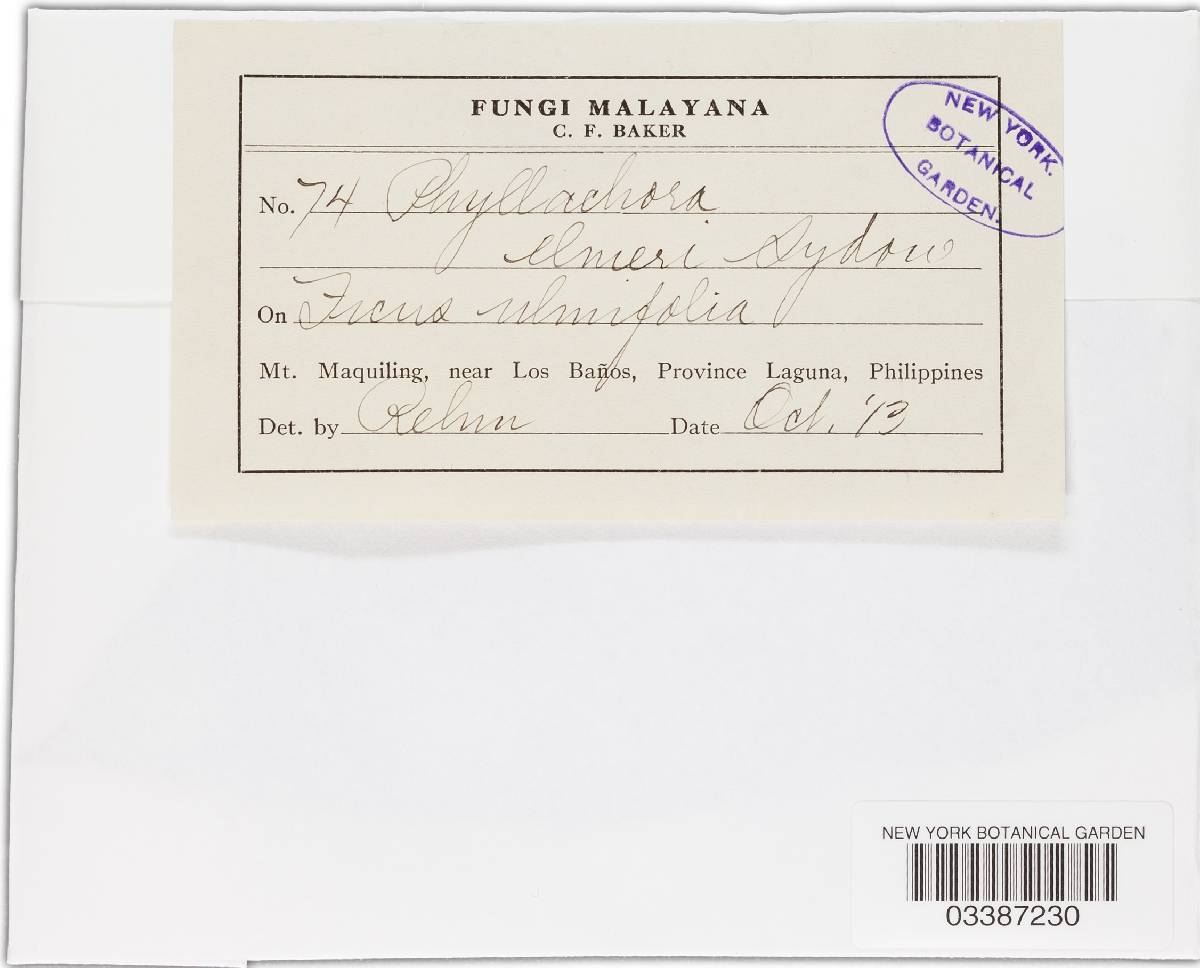 FUNGI MALAYANA
C. F. BAKER
NEW YORK.
BOTANICAL
GARDEN.
No. 74 Phyllachora
elmeri Sydow
On Ficus ulmifolia
Mt. Maquiling, near Los Baños, Province Laguna, Philippines
Det. by Rehm Date Oct. '13
NEW YORK BOTANICAL GARDEN
03387230